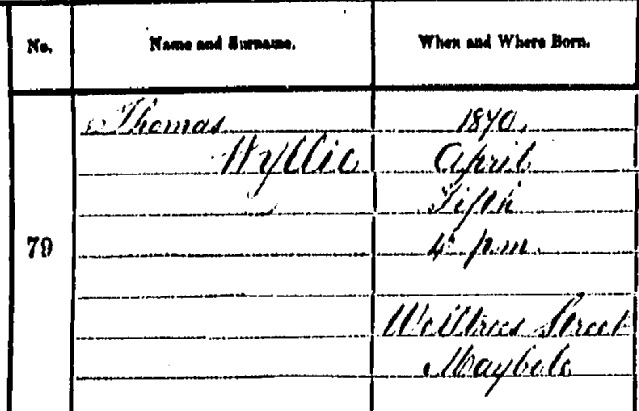 No. Name and Surname. When and Where Born.
Thomas 1870,
Wyllie April
Fifth
79 4 p.m.
Welltrees Street
Maybole